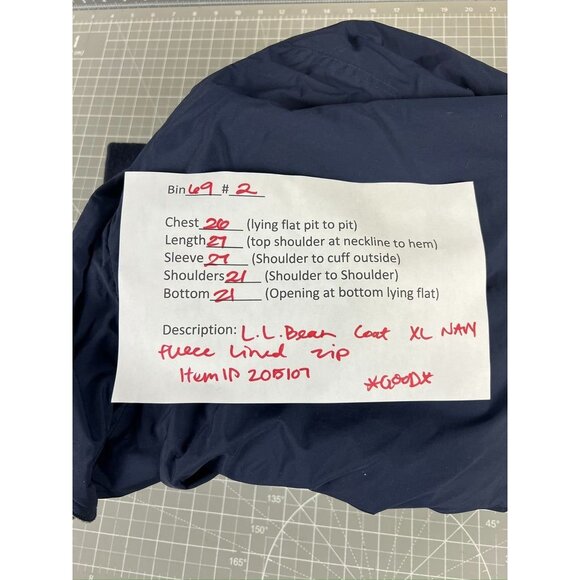 Bin 69 # 2
Chest 26 (lying flat pit to pit)
Length 27 (top shoulder at neckline to hem)
Sleeve 27 (Shoulder to cuff outside)
Shoulders 21 (Shoulder to Shoulder)
Bottom 21 (Opening at bottom lying flat)
Description: L.L.Bean Coat XL NAVY
fleece lined zip
Item ID 205107
*GOOD*
135°
150°
165°
45°